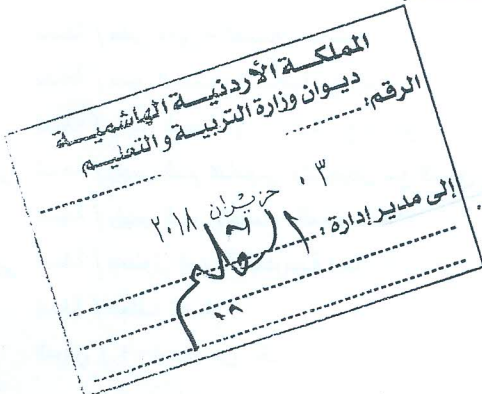 المملكة الأردنية الهاشمية
ديوان وزارة التربية والتعليم
الرقم:
٠٣ حزيران ٢٠١٨
إلى مدير إدارة: